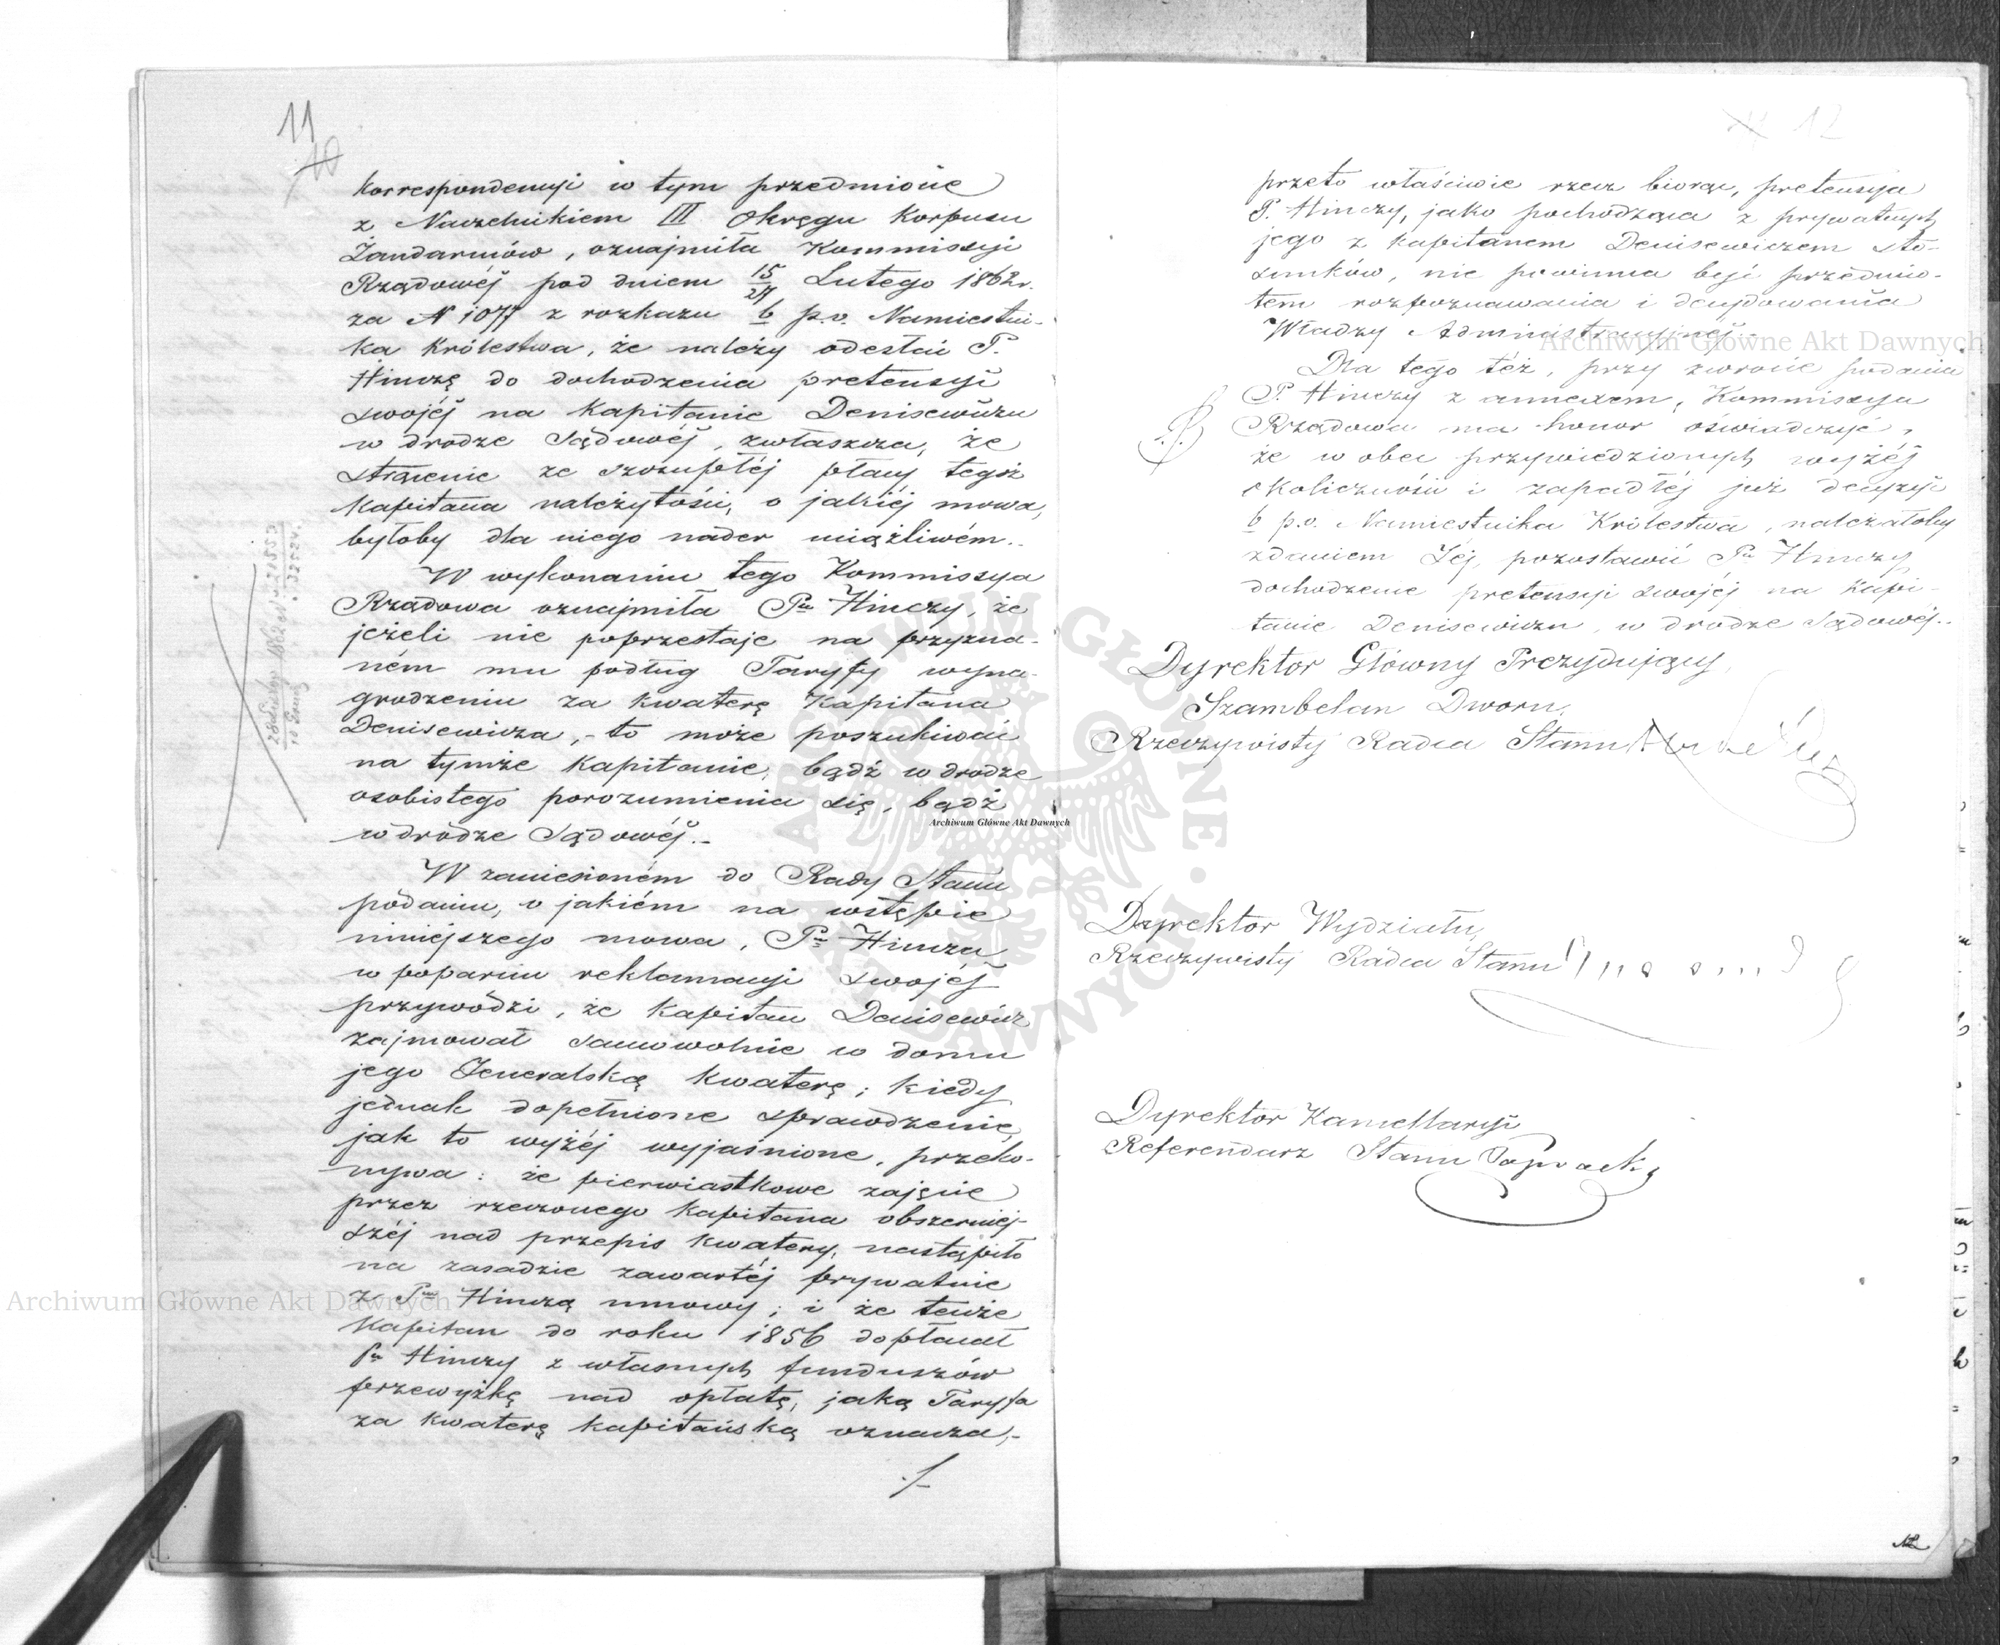 11
10
korrespondencyi w tym przedmiocie
z Naczelnikiem III Okręgu Korpusu
Żandarmów, oznajmiła Kommissyi
Rządowéj pod dniem 15/27 Lutego 1862 r.
za N 1077 z rozkazu b p.o. Namiestni-
ka Królestwa, że należy odesłać P.
Hinczę do dochodzenia pretensyi
swojéj na Kapitanie Denisewiczu
w drodze Sądowéj, zwłaszcza, że
strącenie ze szczupłéj płacy tegoż
Kapitana należytości, o jakiéj mowa,
byłoby dla niego nader uciążliwém.
W wykonaniu tego Kommissya
Rządowa oznajmiła Pu Hinczy, że
jeżeli nie poprzestaje na przyzna-
ném mu podług Taryfy wyna-
grodzeniu za kwaterę Kapitana
Denisewicza, - to może poszukiwać
na tymże Kapitanie, bądź w drodze
osobistego porozumienia się, bądź
w drodze Sądowéj.-
W zaniesioném do Rady Stanu
podaniu, o jakiém na wstępie
niniejszego mowa, P. Hincza
w poparciu reklamacyi swojéj
przywodzi, że Kapitan Denisewicz
zajmował samowolnie w domu
jego Jeneralską kwaterę; kiedy
jednak dopełnione sprawdzenie,
jak to wyżéj wyjaśnione, przeko-
nywa: że pierwiastkowe zajęcie
przez rzeczonego Kapitana obszerniéj-
széj nad przepis kwatery, nastąpiło
na zasadzie zawartéj prywatnie
z Pem Hinczą umowy; i że tenże
Kapitan do roku 1856 dopłacał
Pu Hinczy z własnych funduszów
przewyżkę nad opłatę, jaką Taryfa
za kwaterę kapitańską oznacza,-
./-
12
przeto właściwie rzecz biorąc, pretensya
P. Hinczy, jako pochodząca z prywatnych
jego z Kapitanem Denisewiczem sto-
sunków, nie powinna być przedmio-
tem rozpoznawania i decydowania
Władzy Administracyjnéj.-
Dla tego téż, przy zwrocie podania
P. Hinczy z annexem, Kommissya
Rządowa ma honor oświadczyć,
że wobec przywiedzionych wyżéj
okoliczności i zapadłéj już decyzyi
b p.o. Namiestnika Królestwa, należałoby
zdaniem Jéj, pozostawić Pu Hinczy
dochodzenie pretensyi swojéj na Kapi-
tanie Denisewiczu, w drodze Sądowéj.-
Dyrektor Główny Prezydujący,
Szambelan Dworu,
Rzeczywisty Radca Stanu
Dyrektor Wydziału,
Rzeczywisty Radca Stanu
Dyrektor Kancellaryi
Referendarz Stanu Paprocki
12
Archiwum Główne Akt Dawnych
Archiwum Główne Akt Dawnych
Archiwum Główne Akt Dawnych
ARCHIWUM GŁÓWNE AKT DAWNYCH